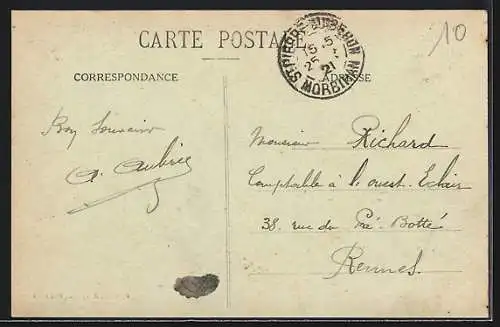 CARTE POSTALE
ST PIERRE-QUIBERON
15 - 5
25 - 7
21
MORBIHAN
10
CORRESPONDANCE
ADRESSE
Bon Souvenir
A. Aubrée
Monsieur Richard
Comptable à l'ouest-Eclair
38. rue du Pré-Botté
Rennes.